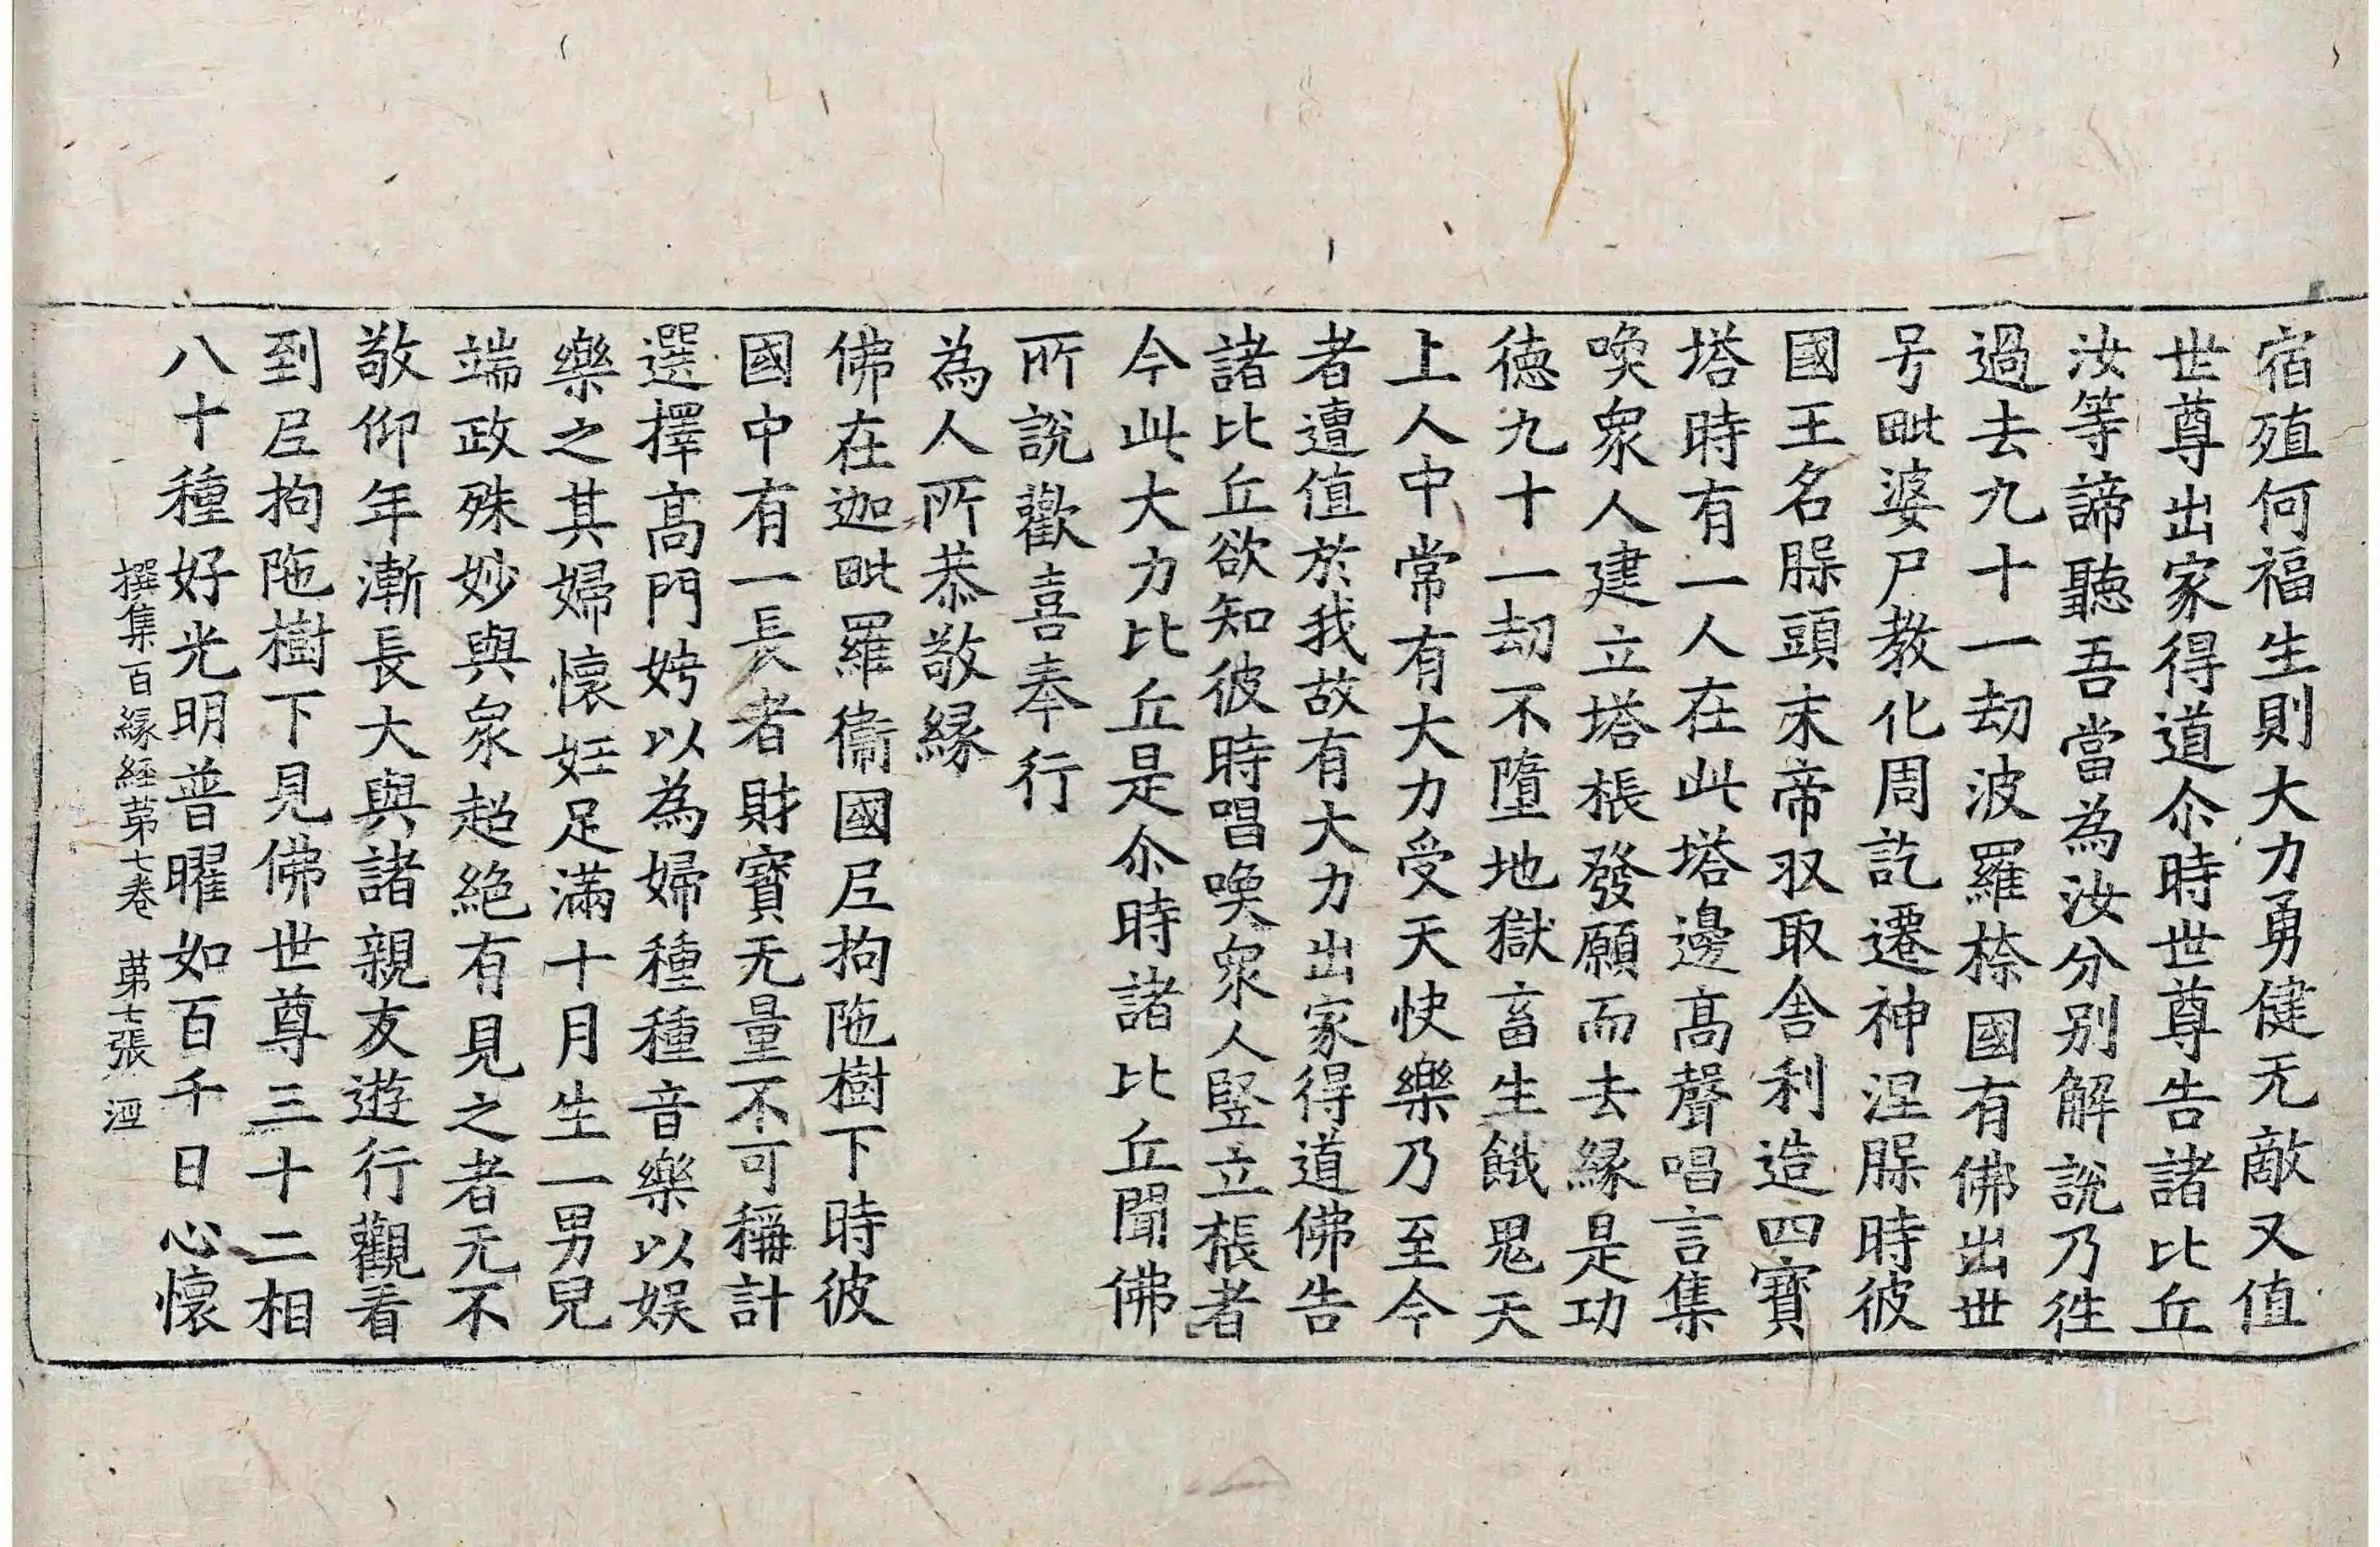 宿殖何福生則大力勇健无敵又值
世尊出家得道尒時世尊告諸比丘
汝等諦聽吾當為汝分別解說乃徃
過去九十一劫波羅㮈國有佛出世
号毗婆尸教化周訖遷神涅槃時彼
國王名槃頭末帝収取舍利造四寶
塔時有一人在此塔邊髙聲唱言集
喚衆人建立塔棖發願而去縁是功
徳九十一劫不墮地獄畜生餓鬼天
上人中常有大力受天快樂乃至今
者遭值於我故有大力出家得道佛告
諸比丘欲知彼時唱喚衆人竪立棖者
今此大力比丘是尒時諸比丘聞佛
所說歡喜奉行
為人所恭敬縁
佛在迦毗羅衞國尼拘陁樹下時彼
國中有一長者財寶无量不可稱計
選擇髙門娉以為婦種種音樂以娱
樂之其婦懷妊足滿十月生一男兒
端政殊妙與衆超絶有見之者无不
敬仰年漸長大與諸親友遊行觀看
到尼拘陁樹下見佛世尊三十二相
八十種好光明普曜如百千日心懷
撰集百縁經苐七卷 苐七張 洰